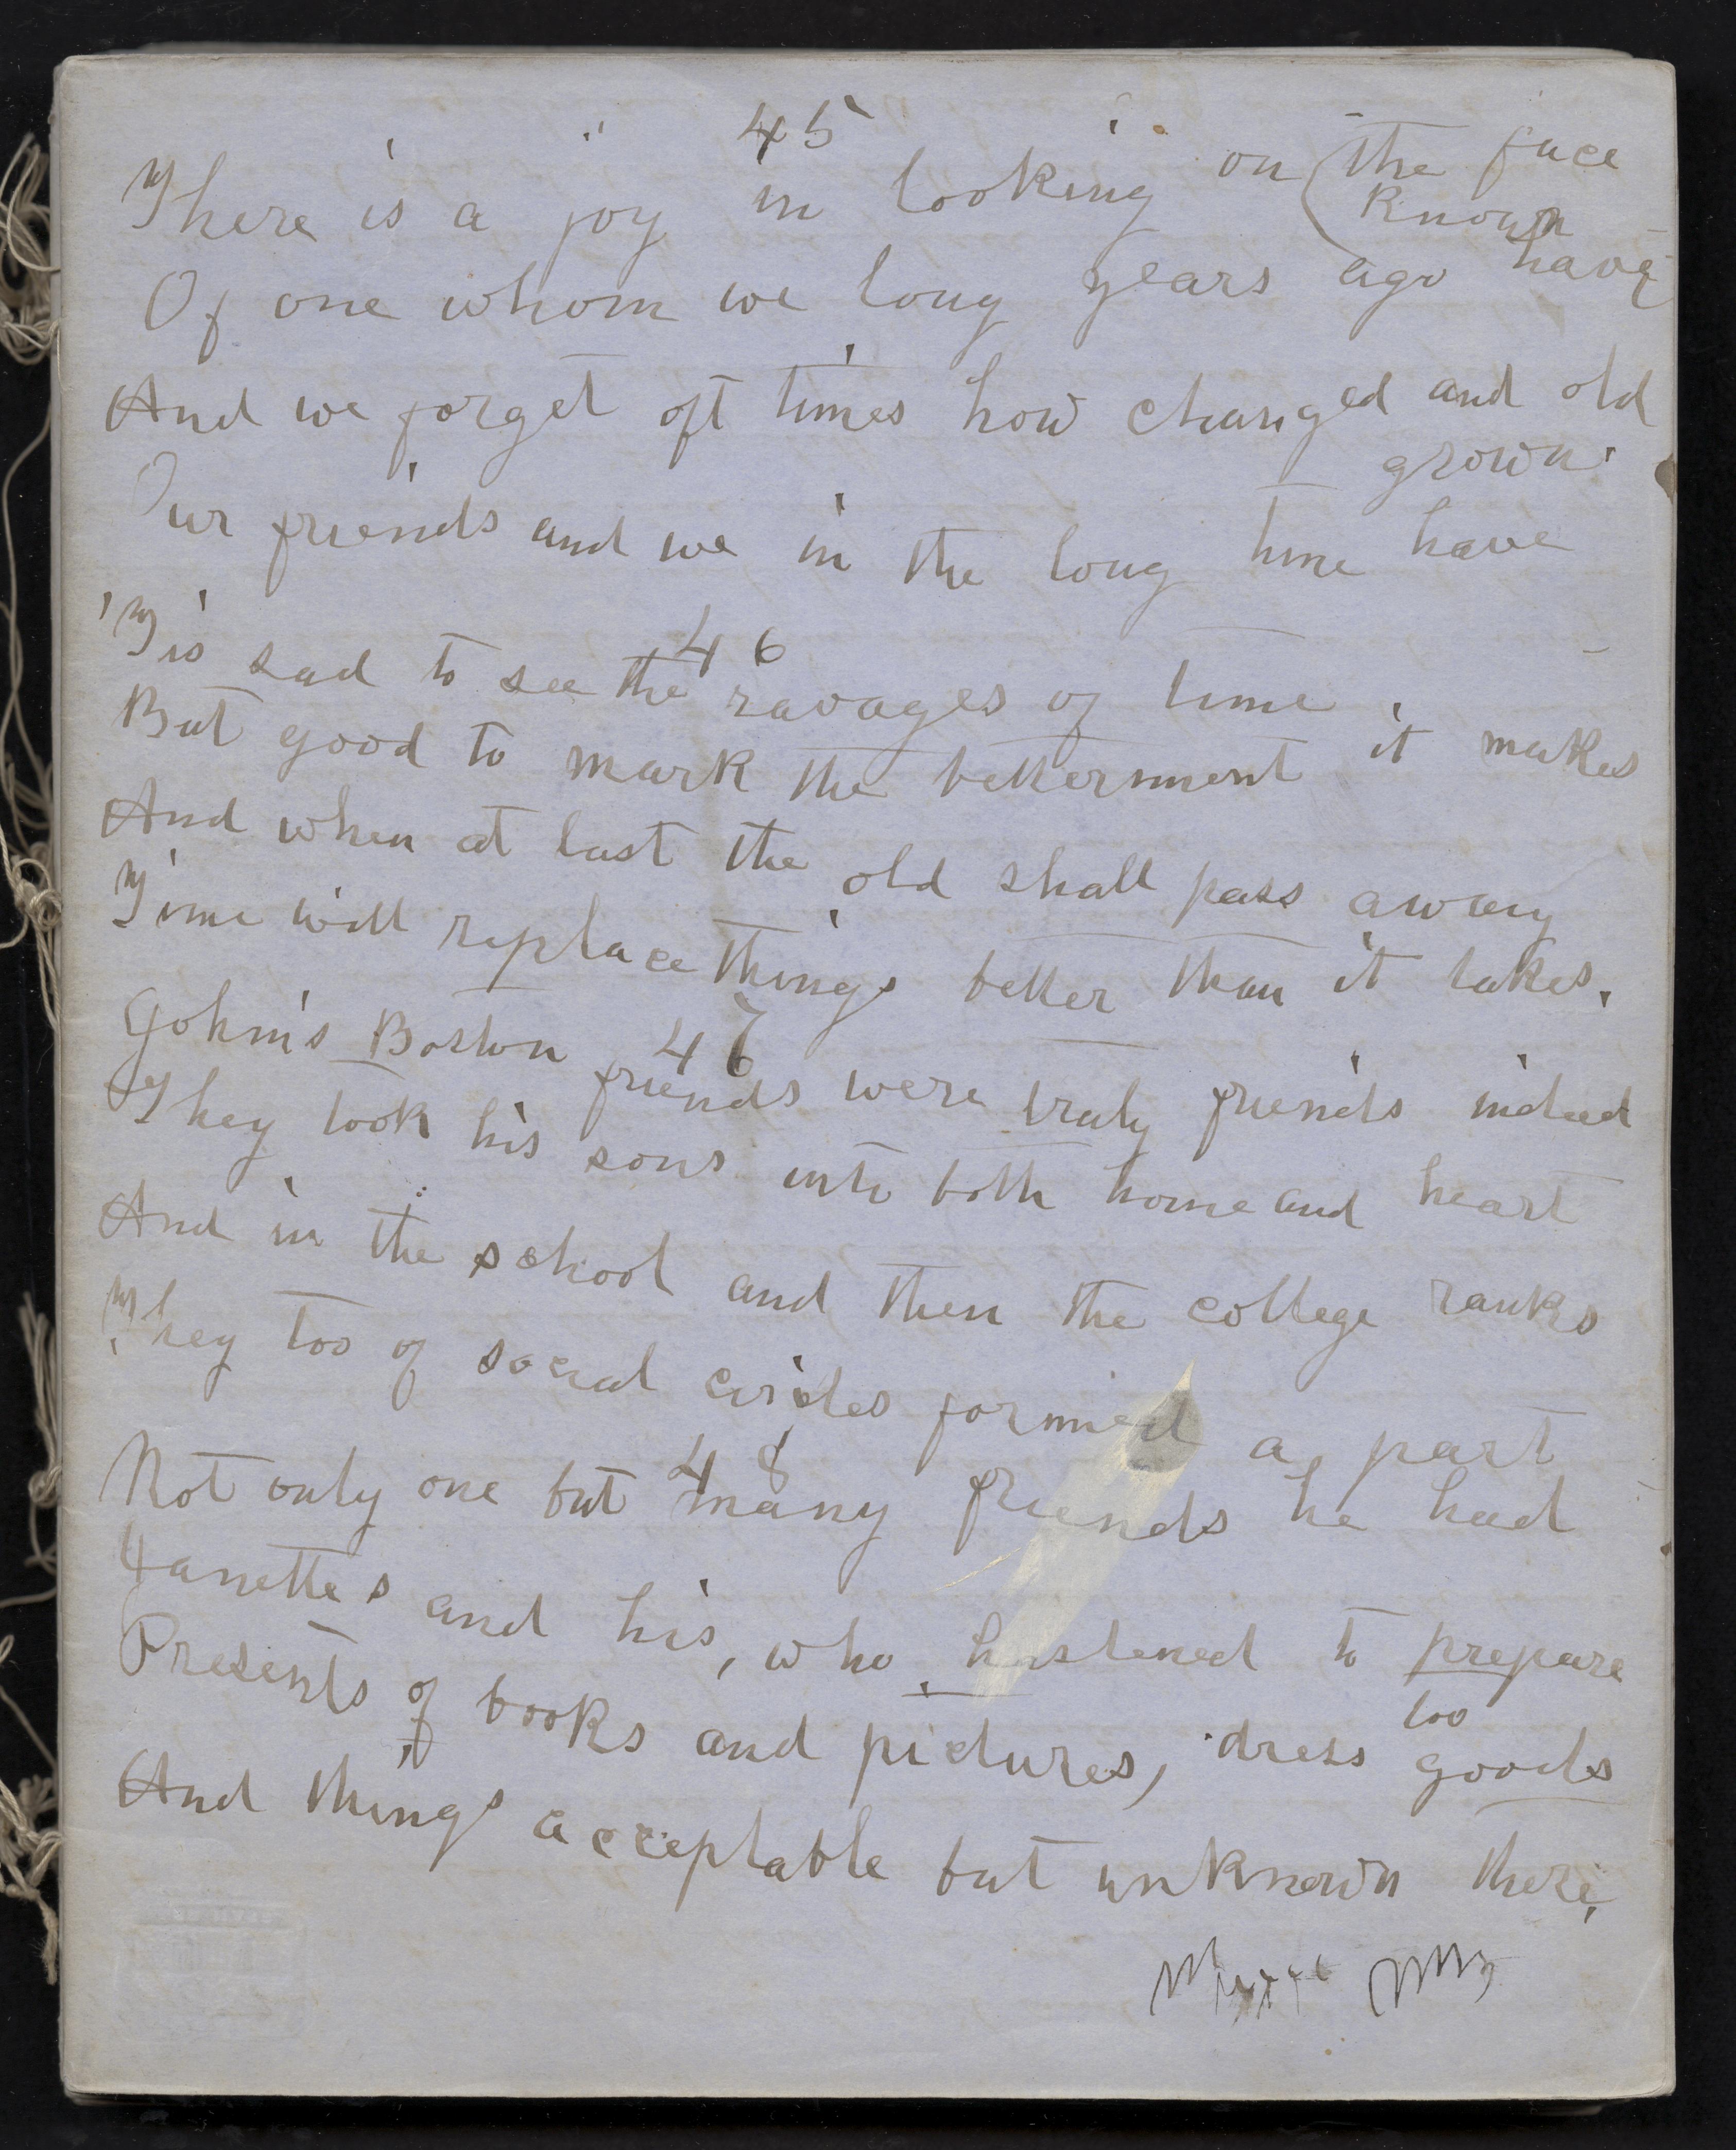 45
There is a joy in looking on (the face
Of one whom we long years ago have known
And we forget oft times how changed and old
grown.
Our friends and we in the long time have
46
'Tis sad to see the ravages of time
But good to mark the betterment it makes
And when at last the old shall pass away
Time will replace things better than it takes.
47
John's Boston friends were truly friends indeed
They took his sons into both home and heart
And in the school and then the college ranks
They too of social circles formed a part
48
Not only one but many friends he had
Janette's and his, who hastened to prepare
Presents of books and pictures, dress goods too
And things acceptable but unknown there,